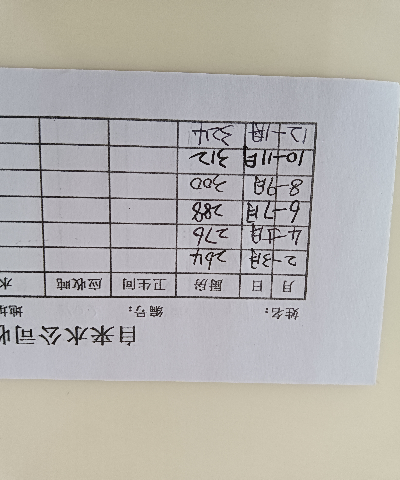 自来水公司收
姓名: 编号: 地址
月 日 厨房 卫生间 应收吨 水
2-3月 264
4-5月 276
6-7月 288
8-9月 300
10-11月 312
12-1月 324